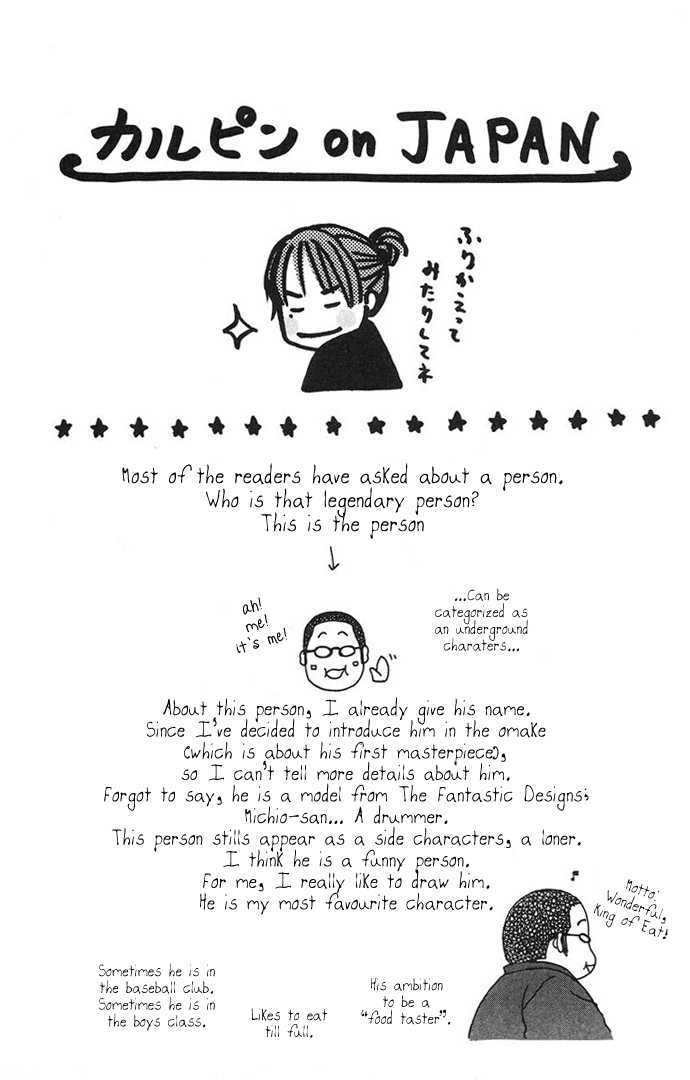 カルピン on JAPAN
ふりかえって
みたりしてネ
Most of the readers have asked about a person.
Who is that legendary person?
This is the person
ah!
me!
it's me!
...Can be
categorized as
an underground
charaters...
About this person, I already give his name.
Since I've decided to introduce him in the omake
(which is about his first masterpiece),
so I can't tell more details about him.
Forgot to say, he is a model from The Fantastic Designs;
Michio-san... A drummer.
This person stills appear as a side characters, a loner.
I think he is a funny person.
For me, I really like to draw him.
He is my most favourite character.
Motto:
Wonderful,
King of Eat!
Sometimes he is in
the baseball club.
Sometimes he is in
the boys class.
Likes to eat
till full.
His ambition
to be a
"food taster".